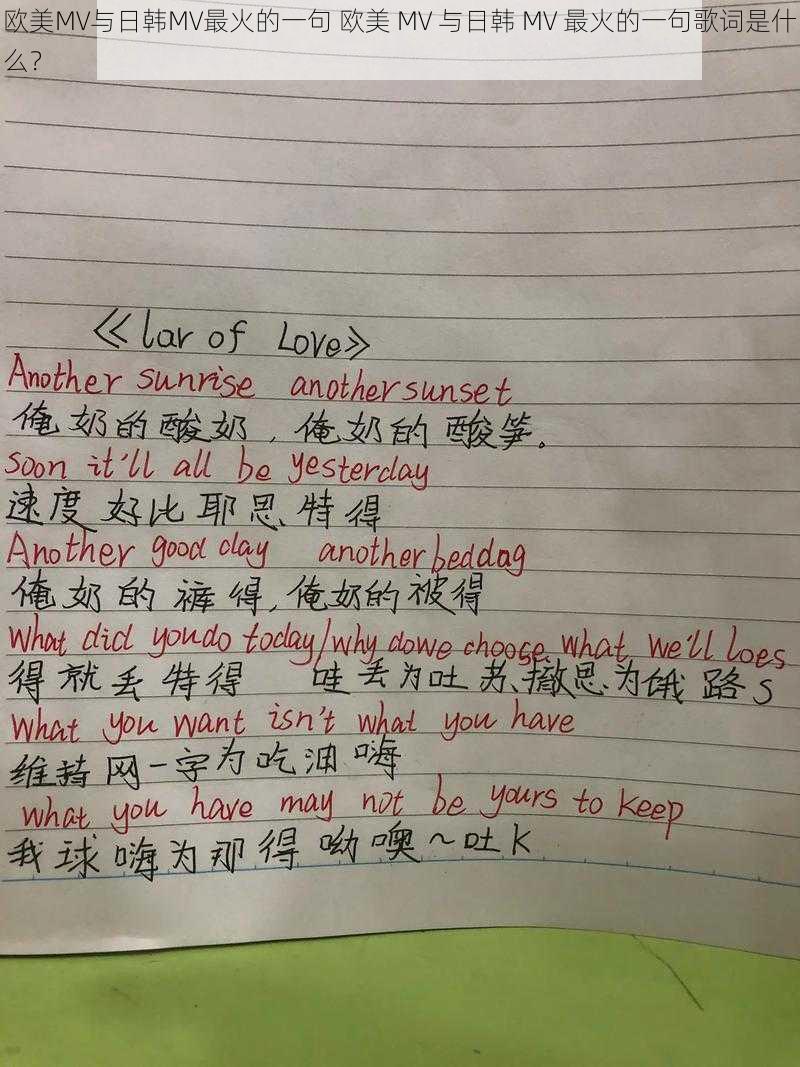 欧美MV与日韩MV最火的一句 欧美 MV 与日韩 MV 最火的一句歌词是什
么?
《lar of Love》
Another sunrise another sunset
俺奶的酸奶，俺奶的酸笋。
soon it'll all be yesterday
速度好比耶思特得
Another good day another beddag
俺奶的裤得，俺奶的被得
what did you do today/why dowe choose what we'll loes
得就丢特得 哇丢为吐苏撤思为饿路S
what you want isn't what you have
维持网一字为吃油嗨
what you have may not be yours to keep
我球嗨为那得呦噢~吐K